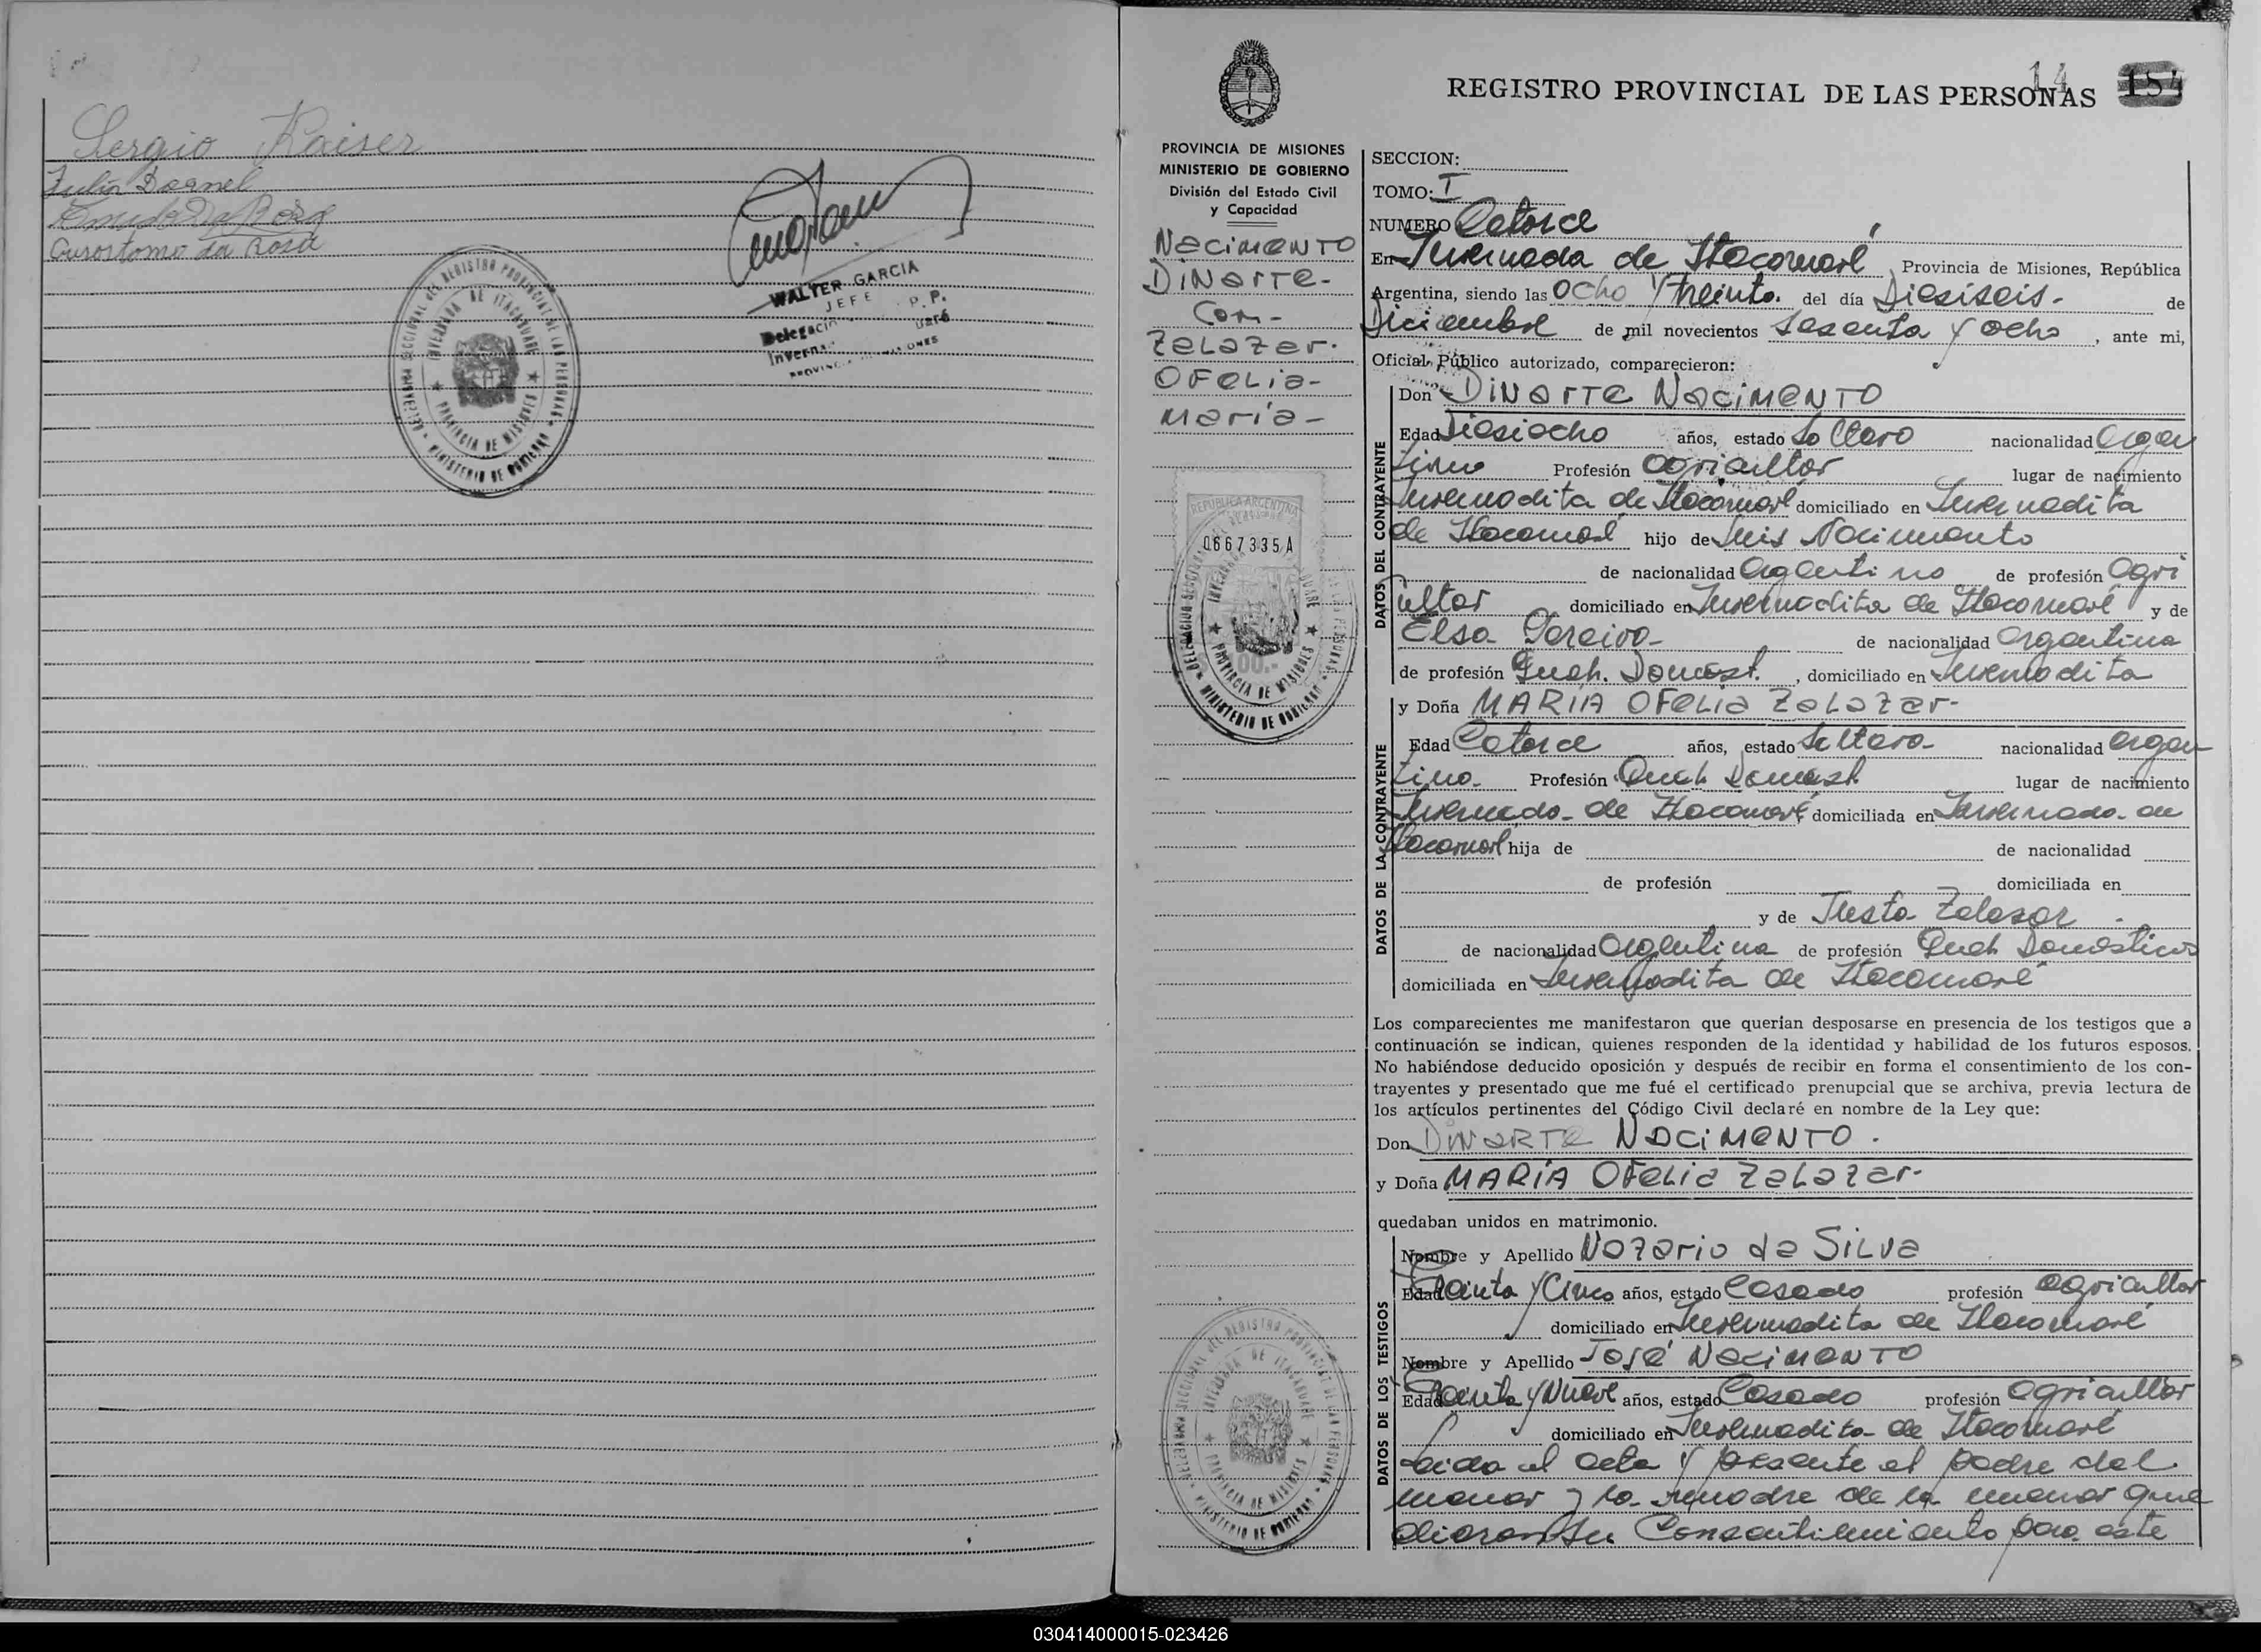 Sergio Kaiser
Julia Dagnel
da Rosa
Crisostomo da Rosa
DELEGACION SECCIONAL DEL REGISTRO PROVINCIAL DE LAS PERSONAS
INVERNADA DE ITACARUARE
PROVINCIA DE MISIONES
MINISTERIO DE GOBIERNO
WALTER GARCIA
JEFE P. P.
Delegación
Inverna uaré
PROVINCIA MISIONES
14
REGISTRO PROVINCIAL DE LAS PERSONAS 184
PROVINCIA DE MISIONES
MINISTERIO DE GOBIERNO
División del Estado Civil
y Capacidad
Nacimento
Dinarte-
Con-
Zelazar.
Ofelia-
María-
REPUBLICA ARGENTINA
0667335A
100.-
DELEGACION SECCIONAL DEL REGISTRO PROVINCIAL DE LAS PERSONAS
INVERNADA DE ITACARUARE
PROVINCIA DE MISIONES
MINISTERIO DE GOBIERNO
SECCION:
TOMO: I
NUMERO Catorce
En Invernada de Itacaruaré Provincia de Misiones, República
Argentina, siendo las Ocho y treinta. del día Diesiseis- de
Diciembre de mil novecientos Sesenta y ocho, ante mi,
Oficial Público autorizado, comparecieron:
DATOS DEL CONTRAYENTE
Don Dinarte Nacimento
Edad Diesiocho años, estado Soltero nacionalidad Argen
tino Profesión agricultor lugar de nacimiento
Invernadita de Itacaruaré domiciliado en Invernadita
de Itacaruaré hijo de Luis Nacimento
de nacionalidad Argentino de profesión Agri
cultor domiciliado en Invernadita de Itacaruaré y de
Elsa Pereira- de nacionalidad Argentina
de profesión Queh. Domest. , domiciliado en Invernadita
DATOS DE LA CONTRAYENTE
y Doña MARIA OFELIA Zelazar-
Edad Catorce años, estado Soltera- nacionalidad Argen
tina- Profesión Queh Domest lugar de nacimiento
Invernada- de Itacaruaré domiciliada en Invernada- de
Itacaruaré hija de de nacionalidad
de profesión domiciliada en
y de Justa Zelasar
de nacionalidad Argentina de profesión Queh Domesticos
domiciliada en Invernadita de Itacaruaré
Los comparecientes me manifestaron que querían desposarse en presencia de los testigos que a
continuación se indican, quienes responden de la identidad y habilidad de los futuros esposos.
No habiéndose deducido oposición y después de recibir en forma el consentimiento de los con-
trayentes y presentado que me fué el certificado prenupcial que se archiva, previa lectura de
los artículos pertinentes del Código Civil declaré en nombre de la Ley que:
Don Dinarte Nacimento.
y Doña MARIA OFELIA Zelazar-
quedaban unidos en matrimonio.
DATOS DE LOS TESTIGOS
Nombre y Apellido Nazario da Silva
Edad Treinta y Cinco años, estado Casado profesión agricultor
domiciliado en Invernadita de Itacaruaré
Nombre y Apellido José Nacimento
Edad Treinta y Nueve años, estado Casado profesión Agricultor
domiciliado en Invernadita- de Itacaruaré
Leida el acta y presente el padre del
menor y la madre de la menor que
dieron su Consentimiento para este
DELEGACION SECCIONAL DEL REGISTRO PROVINCIAL DE LAS PERSONAS
INVERNADA DE ITACARUARE
PROVINCIA DE MISIONES
MINISTERIO DE GOBIERNO
030414000015-023426